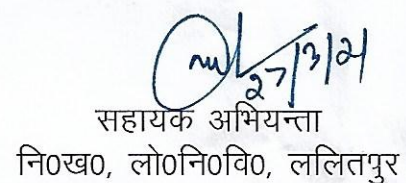 27/3/21
सहायक अभियन्ता
नि0ख0, लो0नि0वि0, ललितपुर